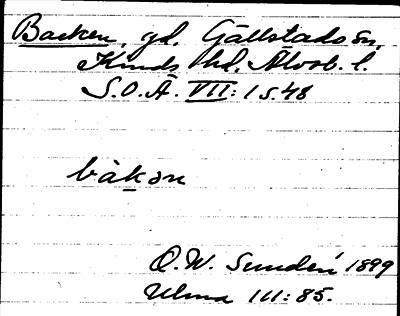 Backen, gd. Gällstads sn,
Kinds hd, Älvsb. l.
S.O.Ä. VII: 1 s. 48
bàkən
O.W. Sundén 1899
Ulma 111:85.